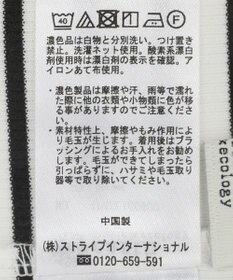 40
濃色品は白物と分別洗い。つけ置き
禁止。洗濯ネット使用。酸素系漂白
剤使用時は漂白剤の表示を確認。ア
イロンあて布使用。
・濃色製品は摩擦や汗、雨等で濡れ
た際に他の衣類や小物類に色が移
る事がありますのでご注意下さ
い。
・素材特性上、摩擦やもみ作用によ
り毛玉が生じます。着用後はブラ
ッシングによるお手入れをお勧め
します。毛玉ができてしまったら
引っぱらずに、ハサミや毛玉取り
器等で取り除いてください。
中国製
(株)ストライプインターナショナル
0120-659-591
ecology